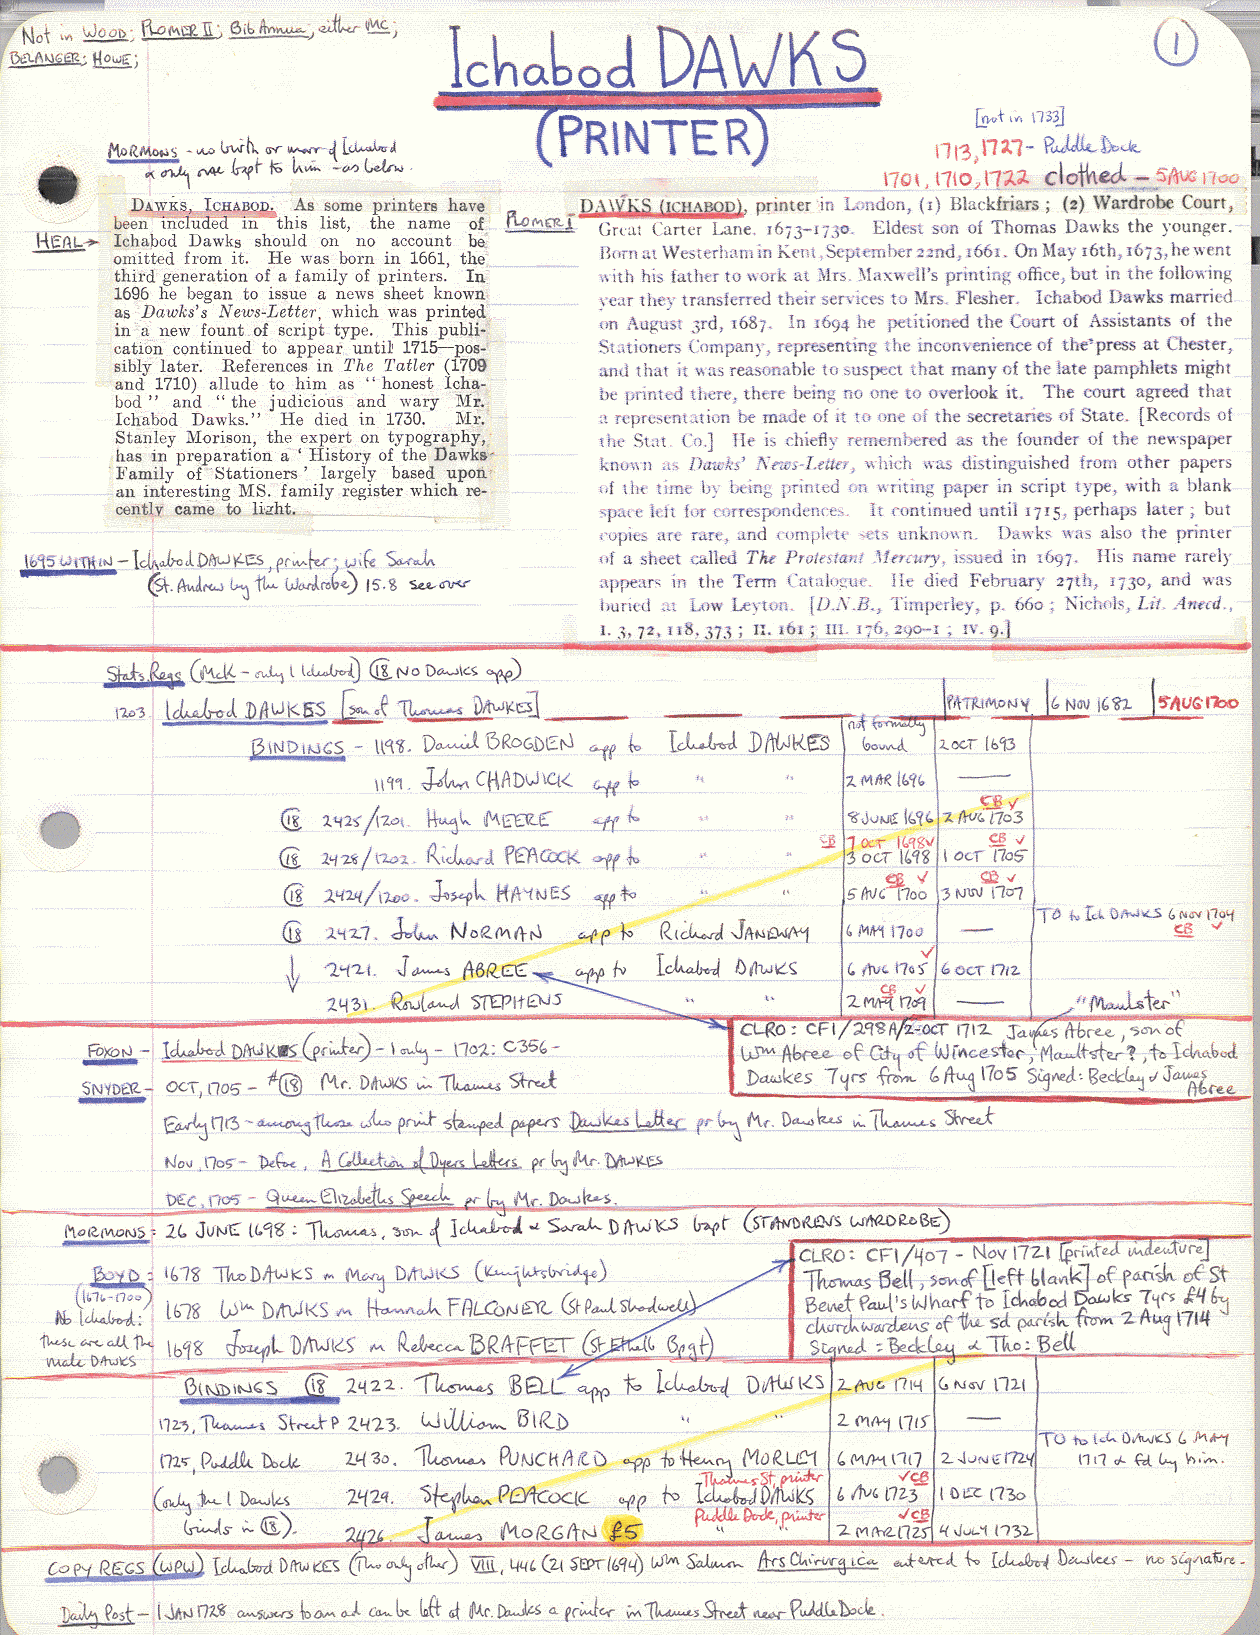 Not in WOOD; PLOMER II; Bib Annua; either MC;
BELANGER; HOWE;
Ichabod DAWKS
(PRINTER)
1
[not in 1733]
1713, 1727 - Puddle Dock
1701, 1710, 1722 clothed - 5 AUG 1700
MORMONS - no birth or marr of Ichabod
& only one bapt to him - as below.
HEAL →
DAWKS, ICHABOD. As some printers have
been included in this list, the name of
Ichabod Dawks should on no account be
omitted from it. He was born in 1661, the
third generation of a family of printers. In
1696 he began to issue a news sheet known
as Dawks's News-Letter, which was printed
in a new fount of script type. This publi-
cation continued to appear until 1715—pos-
sibly later. References in The Tatler (1709
and 1710) allude to him as "honest Icha-
bod" and "the judicious and wary Mr.
Ichabod Dawks." He died in 1730. Mr.
Stanley Morison, the expert on typography,
has in preparation a 'History of the Dawks
Family of Stationers' largely based upon
an interesting MS. family register which re-
cently came to light.
PLOMER I
DAWKS (ICHABOD), printer in London, (1) Blackfriars; (2) Wardrobe Court,
Great Carter Lane. 1673-1730. Eldest son of Thomas Dawks the younger.
Born at Westerham in Kent, September 22nd, 1661. On May 16th, 1673, he went
with his father to work at Mrs. Maxwell's printing office, but in the following
year they transferred their services to Mrs. Flesher. Ichabod Dawks married
on August 3rd, 1687. In 1694 he petitioned the Court of Assistants of the
Stationers Company, representing the inconvenience of the press at Chester,
and that it was reasonable to suspect that many of the late pamphlets might
be printed there, there being no one to overlook it. The court agreed that
a representation be made of it to one of the secretaries of State. [Records of
the Stat. Co.] He is chiefly remembered as the founder of the newspaper
known as Dawks' News-Letter, which was distinguished from other papers
of the time by being printed on writing paper in script type, with a blank
space left for correspondences. It continued until 1715, perhaps later; but
copies are rare, and complete sets unknown. Dawks was also the printer
of a sheet called The Protestant Mercury, issued in 1697. His name rarely
appears in the Term Catalogue. He died February 27th, 1730, and was
buried at Low Leyton. [D.N.B., Timperley, p. 660; Nichols, Lit. Anecd.,
I. 3, 72, 118, 373; II. 161; III. 176, 290-1; IV. 9.]
1695 WITHIN - Ichabod DAWKES, printer; wife Sarah
(St. Andrew by the Wardrobe) 15.8 see over
Stats. Regs (McK - only 1 Ichabod) (18 NO Dawks app)
1203 Ichabod DAWKES [son of Thomas DAWKES] PATRIMONY 6 NOV 1682 5 AUG 1700
BINDINGS - 1198. Daniel BROGDEN app to Ichabod DAWKES not formally bound 2 OCT 1693
1199. John CHADWICK app to " " 2 MAR 1696 —
18 2425/1201. Hugh MEERE app to " " 8 JUNE 1696 CB ✓ 2 AUG 1703
18 2428/1202. Richard PEACOCK app to " " CB 7 OCT 1698 ✓ 3 OCT 1698 CB ✓ 1 OCT 1705
18 2424/1200. Joseph HAYNES app to " " CB ✓ 5 AUG 1700 CB ✓ 3 NOV 1707
18 2427. John NORMAN app to Richard JANEWAY 6 MAY 1700 — TO to Ich DAWKS 6 NOV 1704 CB ✓
2421. James ABREE app to Ichabod DAWKS ✓ 6 AUG 1705 6 OCT 1712
2431. Rowland STEPHENS " " CB ✓ 2 MAY 1709 — "Maulster"
CLRO: CF1/298A/2-OCT 1712 James Abree, son of
Wm Abree of City of Wincester, Maultster?, to Ichabod
Dawkes 7yrs from 6 Aug 1705 Signed: Beckley & James
Abree
FOXON - Ichabod DAWKES (printer) - 1 only - 1702: C356 -
SNYDER - OCT, 1705 - #18 Mr. DAWKS in Thames Street
Early 1713 - among those who print stamped papers Dawkes Letter pr by Mr. Dawkes in Thames Street
Nov, 1705 - Defoe, A Collection of Dyers Letters pr by Mr. DAWKES
DEC, 1705 - Queen Elizabeths Speech pr by Mr. Dawkes.
MORMONS: 26 JUNE 1698: Thomas, son of Ichabod & Sarah DAWKS bapt (ST ANDREWS WARDROBE)
BOYD: 1678 Tho DAWKS m Mary DAWKS (Knightsbridge)
(1676-1700)
No Ichabod:
these are all the
male DAWKS
1678 Wm DAWKS m Hannah FALCONER (St Paul Shadwell)
1698 Joseph DAWKS m Rebecca BRAFFET (St Ethelb Bpgt)
CLRO: CF1/407 - Nov 1721 [printed indenture]
Thomas Bell, son of [left blank] of parish of St
Benet Paul's Wharf to Ichabod Dawks 7yrs £4 by
churchwardens of the sd parish from 2 Aug 1714
Signed: Beckley & Tho: Bell
BINDINGS 18 2422. Thomas BELL app to Ichabod DAWKS 2 AUG 1714 6 NOV 1721
1723, Thames Street P 2423. William BIRD " " 2 MAY 1715 —
1725, Puddle Dock 2430. Thomas PUNCHARD app to Henry MORLEY 6 MAY 1717 2 JUNE 1724 TO to Ich DAWKS 6 MAY 1717 & fd by him.
(only the 1 Dawks 2429. Stephen PEACOCK app to Thames St, printer Ichabod DAWKS ✓CB 6 AUG 1723 1 DEC 1730
binds in 18). 2426. James MORGAN £5 Puddle Dock, printer " " ✓CB 2 MAR 1725 4 JULY 1732
COPY REGS (WPW) Ichabod DAWKES (Tho only other) VIII, 446 (21 SEPT 1694) Wm Salmon Ars Chirurgica entered to Ichabod Dawkes - no signature.
Daily Post - 1 JAN 1728 answers to an ad can be left at Mr. Dawks a printer in Thames Street near Puddle Dock.